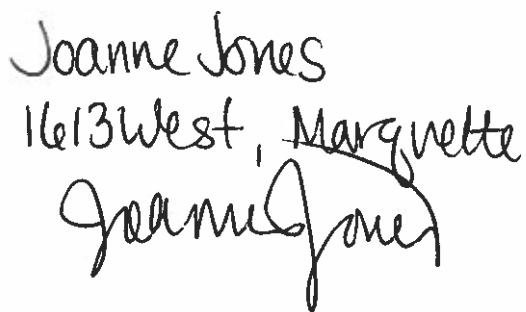 Joanne Jones
1613 West, Marquette
Joanne Jones